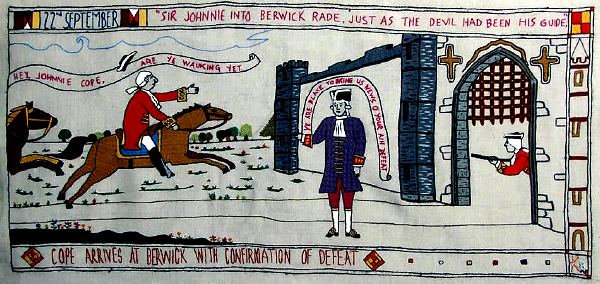 22ND SEPTEMBER
"SIR JOHNNIE INTO BERWICK RADE, JUST AS THE DEVIL HAD BEEN HIS GUIDE"
HEY, JOHNNIE COPE, ARE YE WAUKING YET
YE ARE BLATE TO BRING US NEWS O YOUR AIN DEFEAT
COPE ARRIVES AT BERWICK WITH CONFIRMATION OF DEFEAT